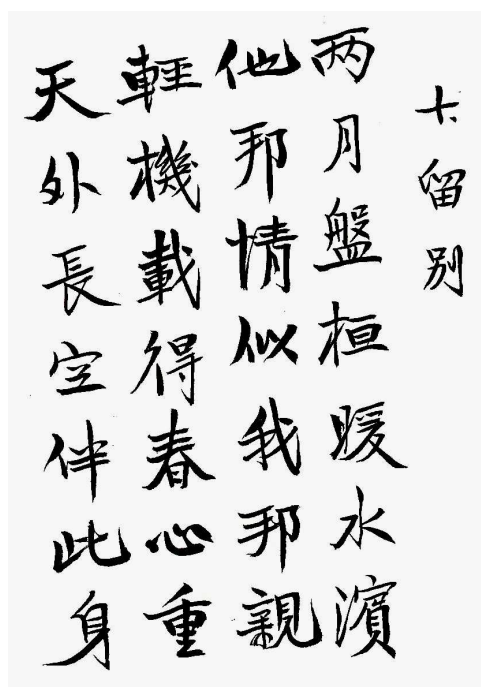 留别
两月盤桓暖水濱
他邦情似我邦親
輕機載得春心重
天外長空伴此身